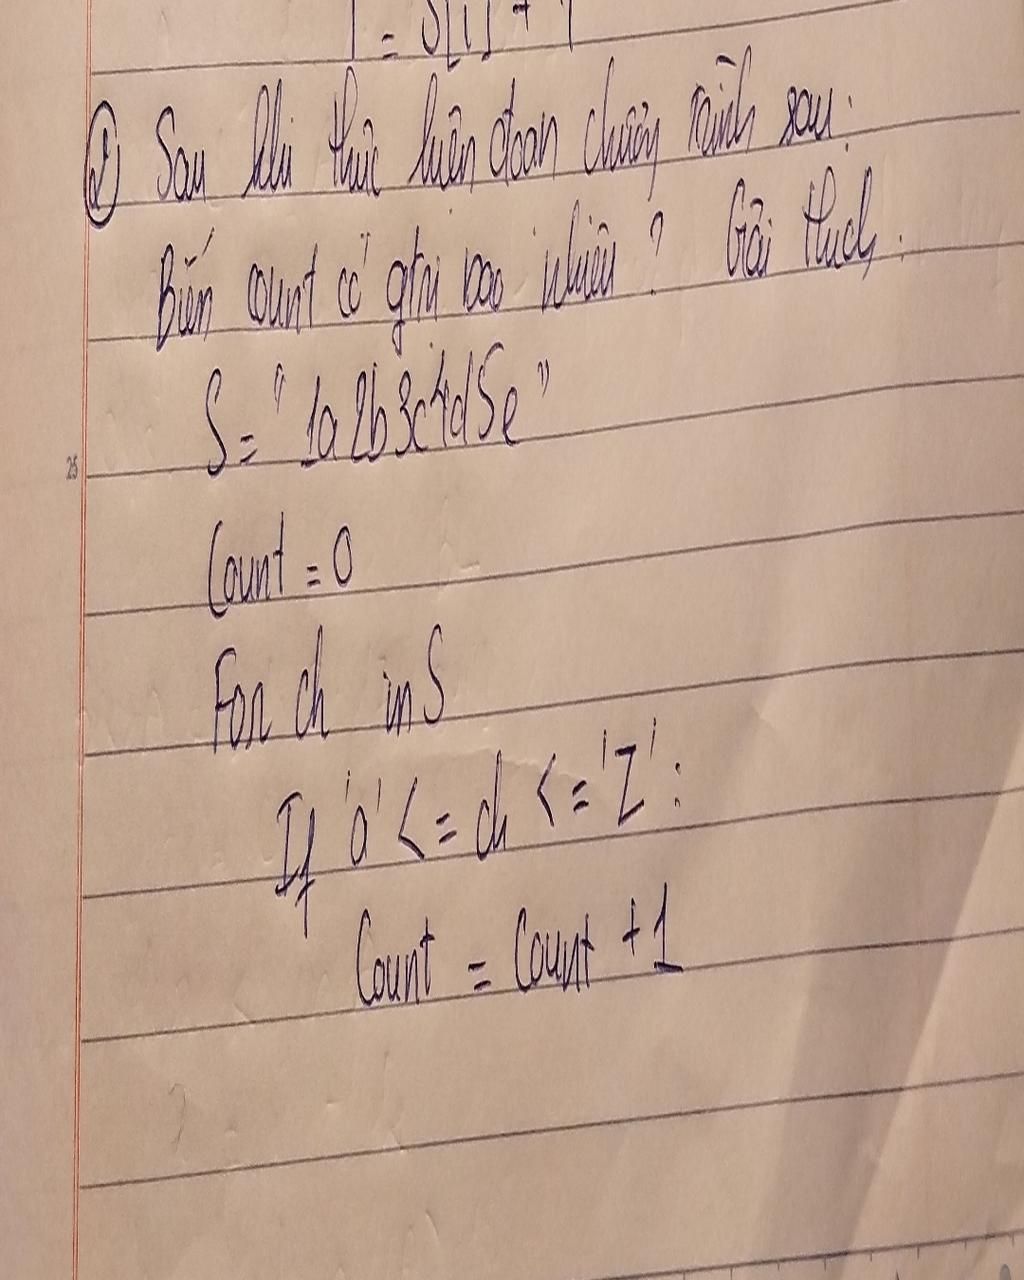 = S[i] + 1
② Sau khi thực hiện đoạn chương trình sau:
Biến count có gtrị bao nhiêu? Giải thích.
S = "1a2b3c4d5e"
Count = 0
For ch in S
If 'a' <= ch <= 'Z':
Count = Count + 1
25